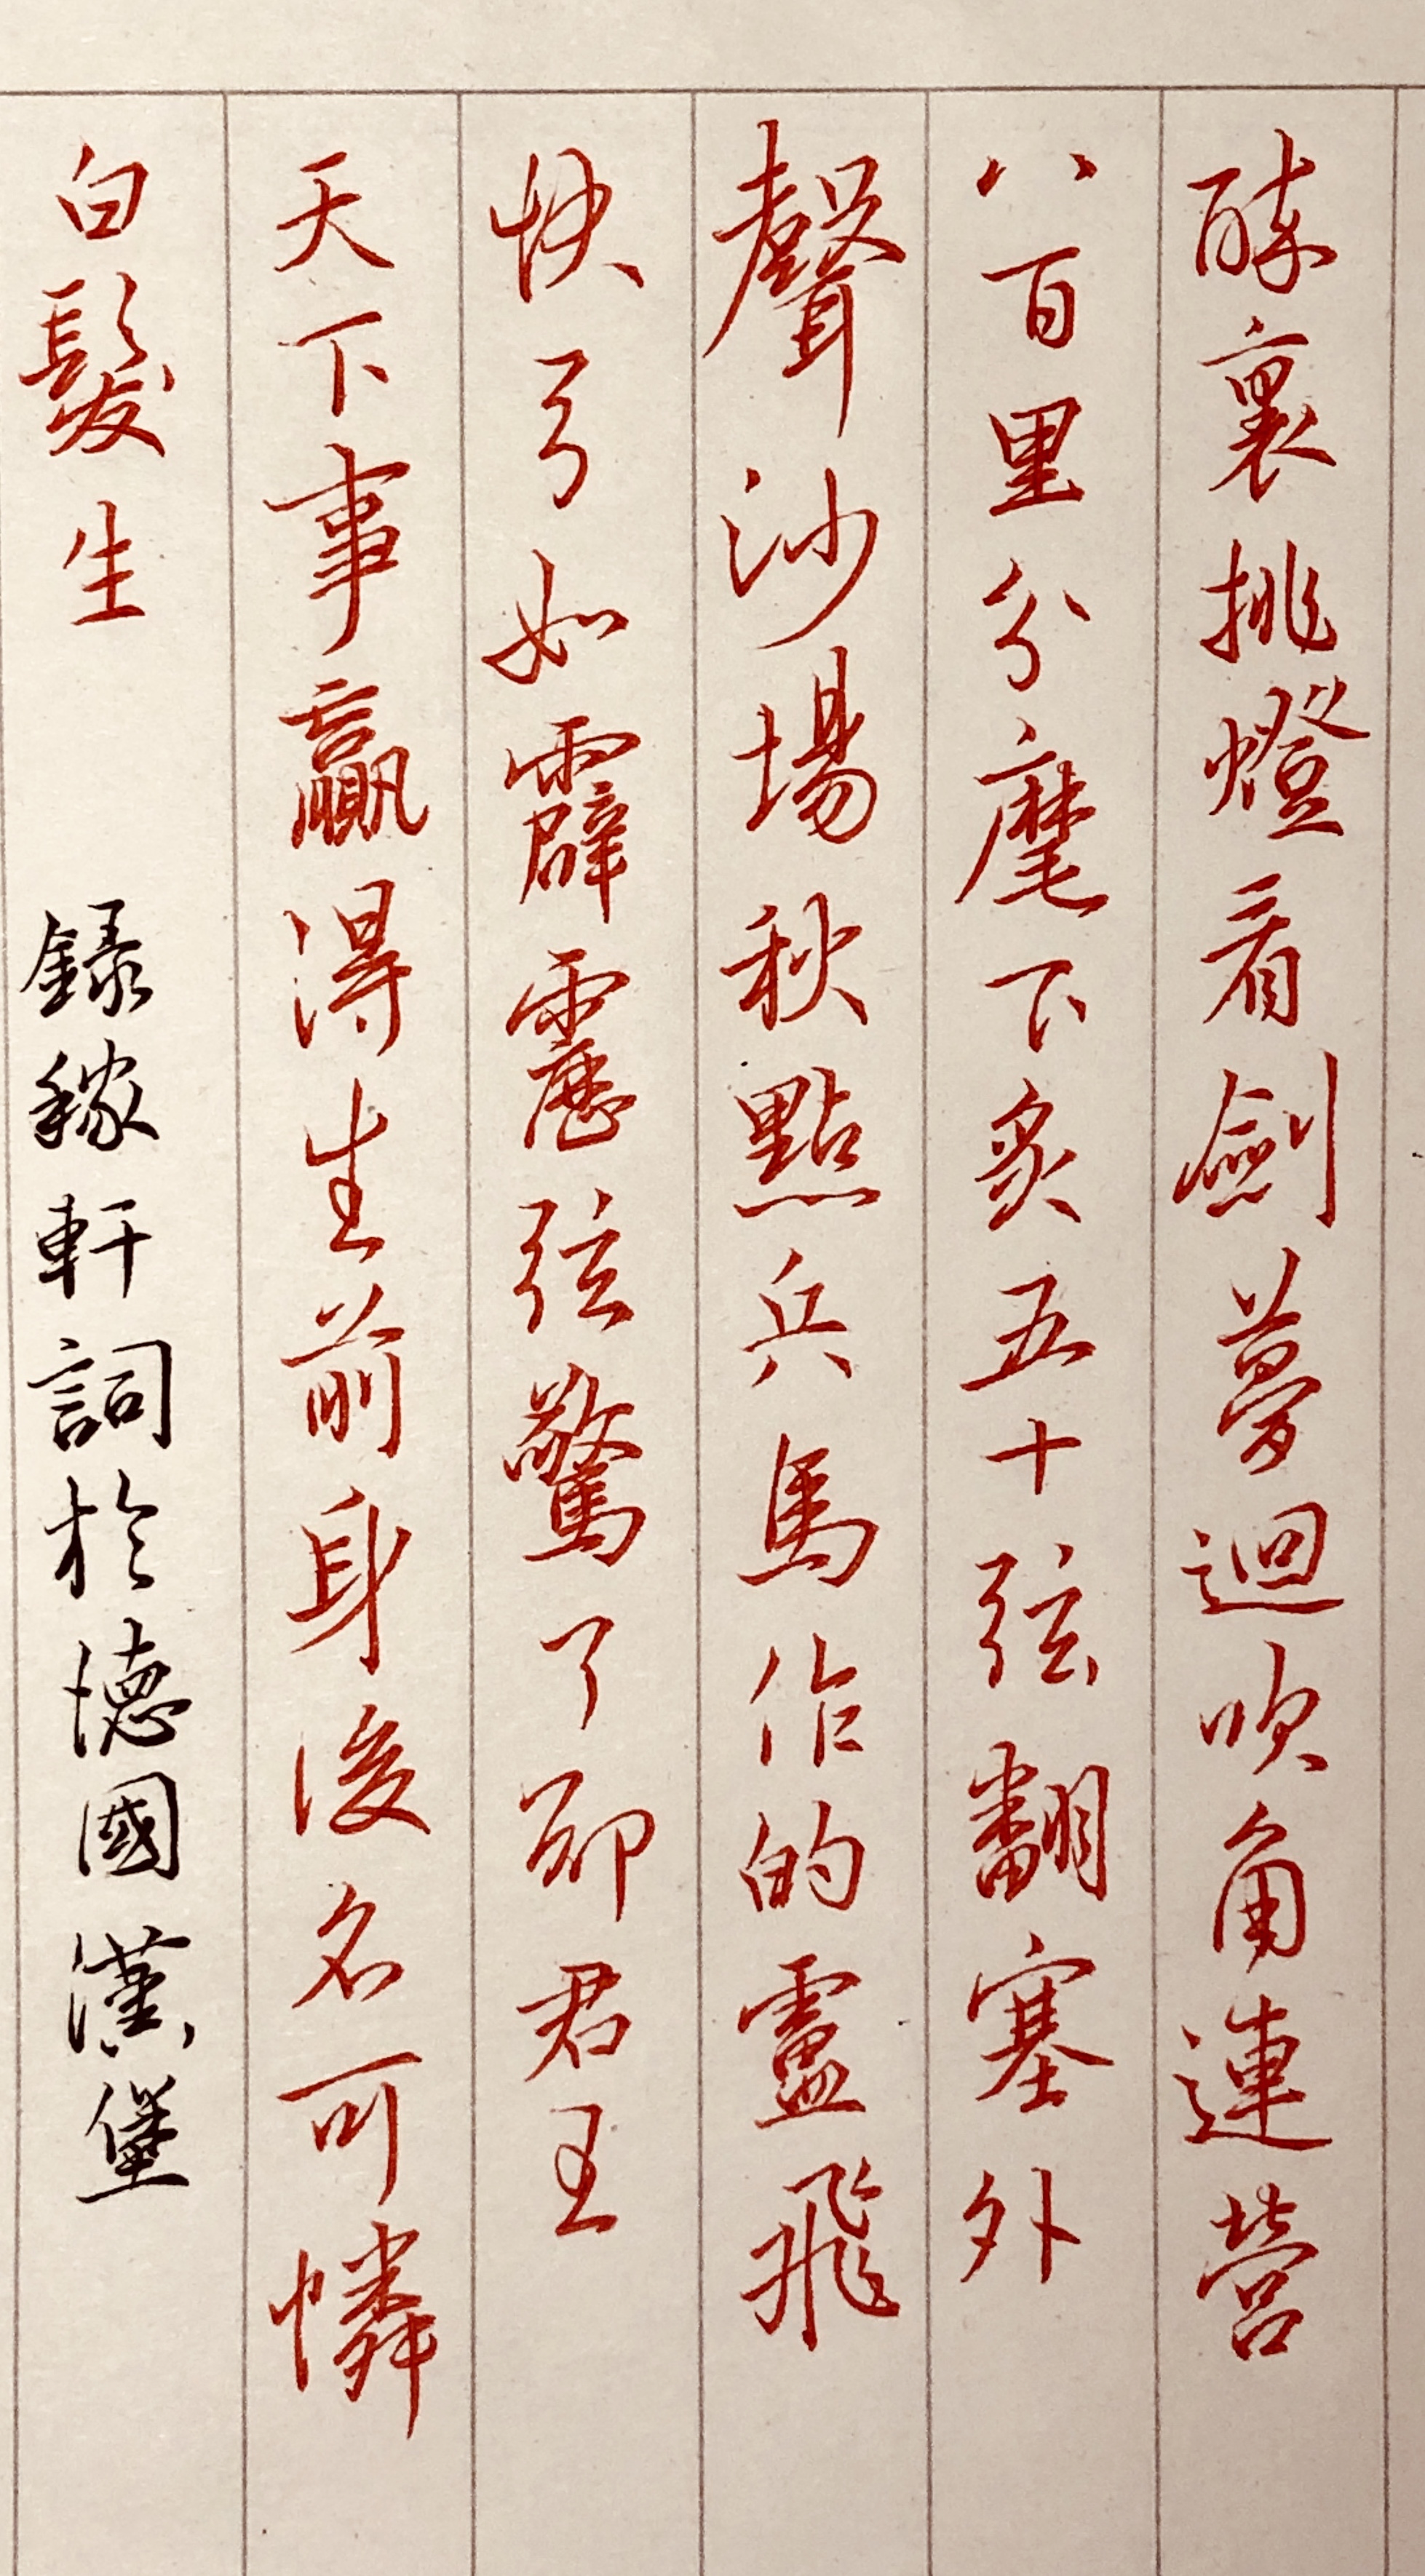 醉裏挑燈看劍夢迴吹角連營
八百里分麾下炙五十弦翻塞外
聲沙場秋點兵馬作的盧飛
快弓如霹靂弦驚了卻君王
天下事贏得生前身後名可憐
白髮生
錄稼軒詞於德國漢堡